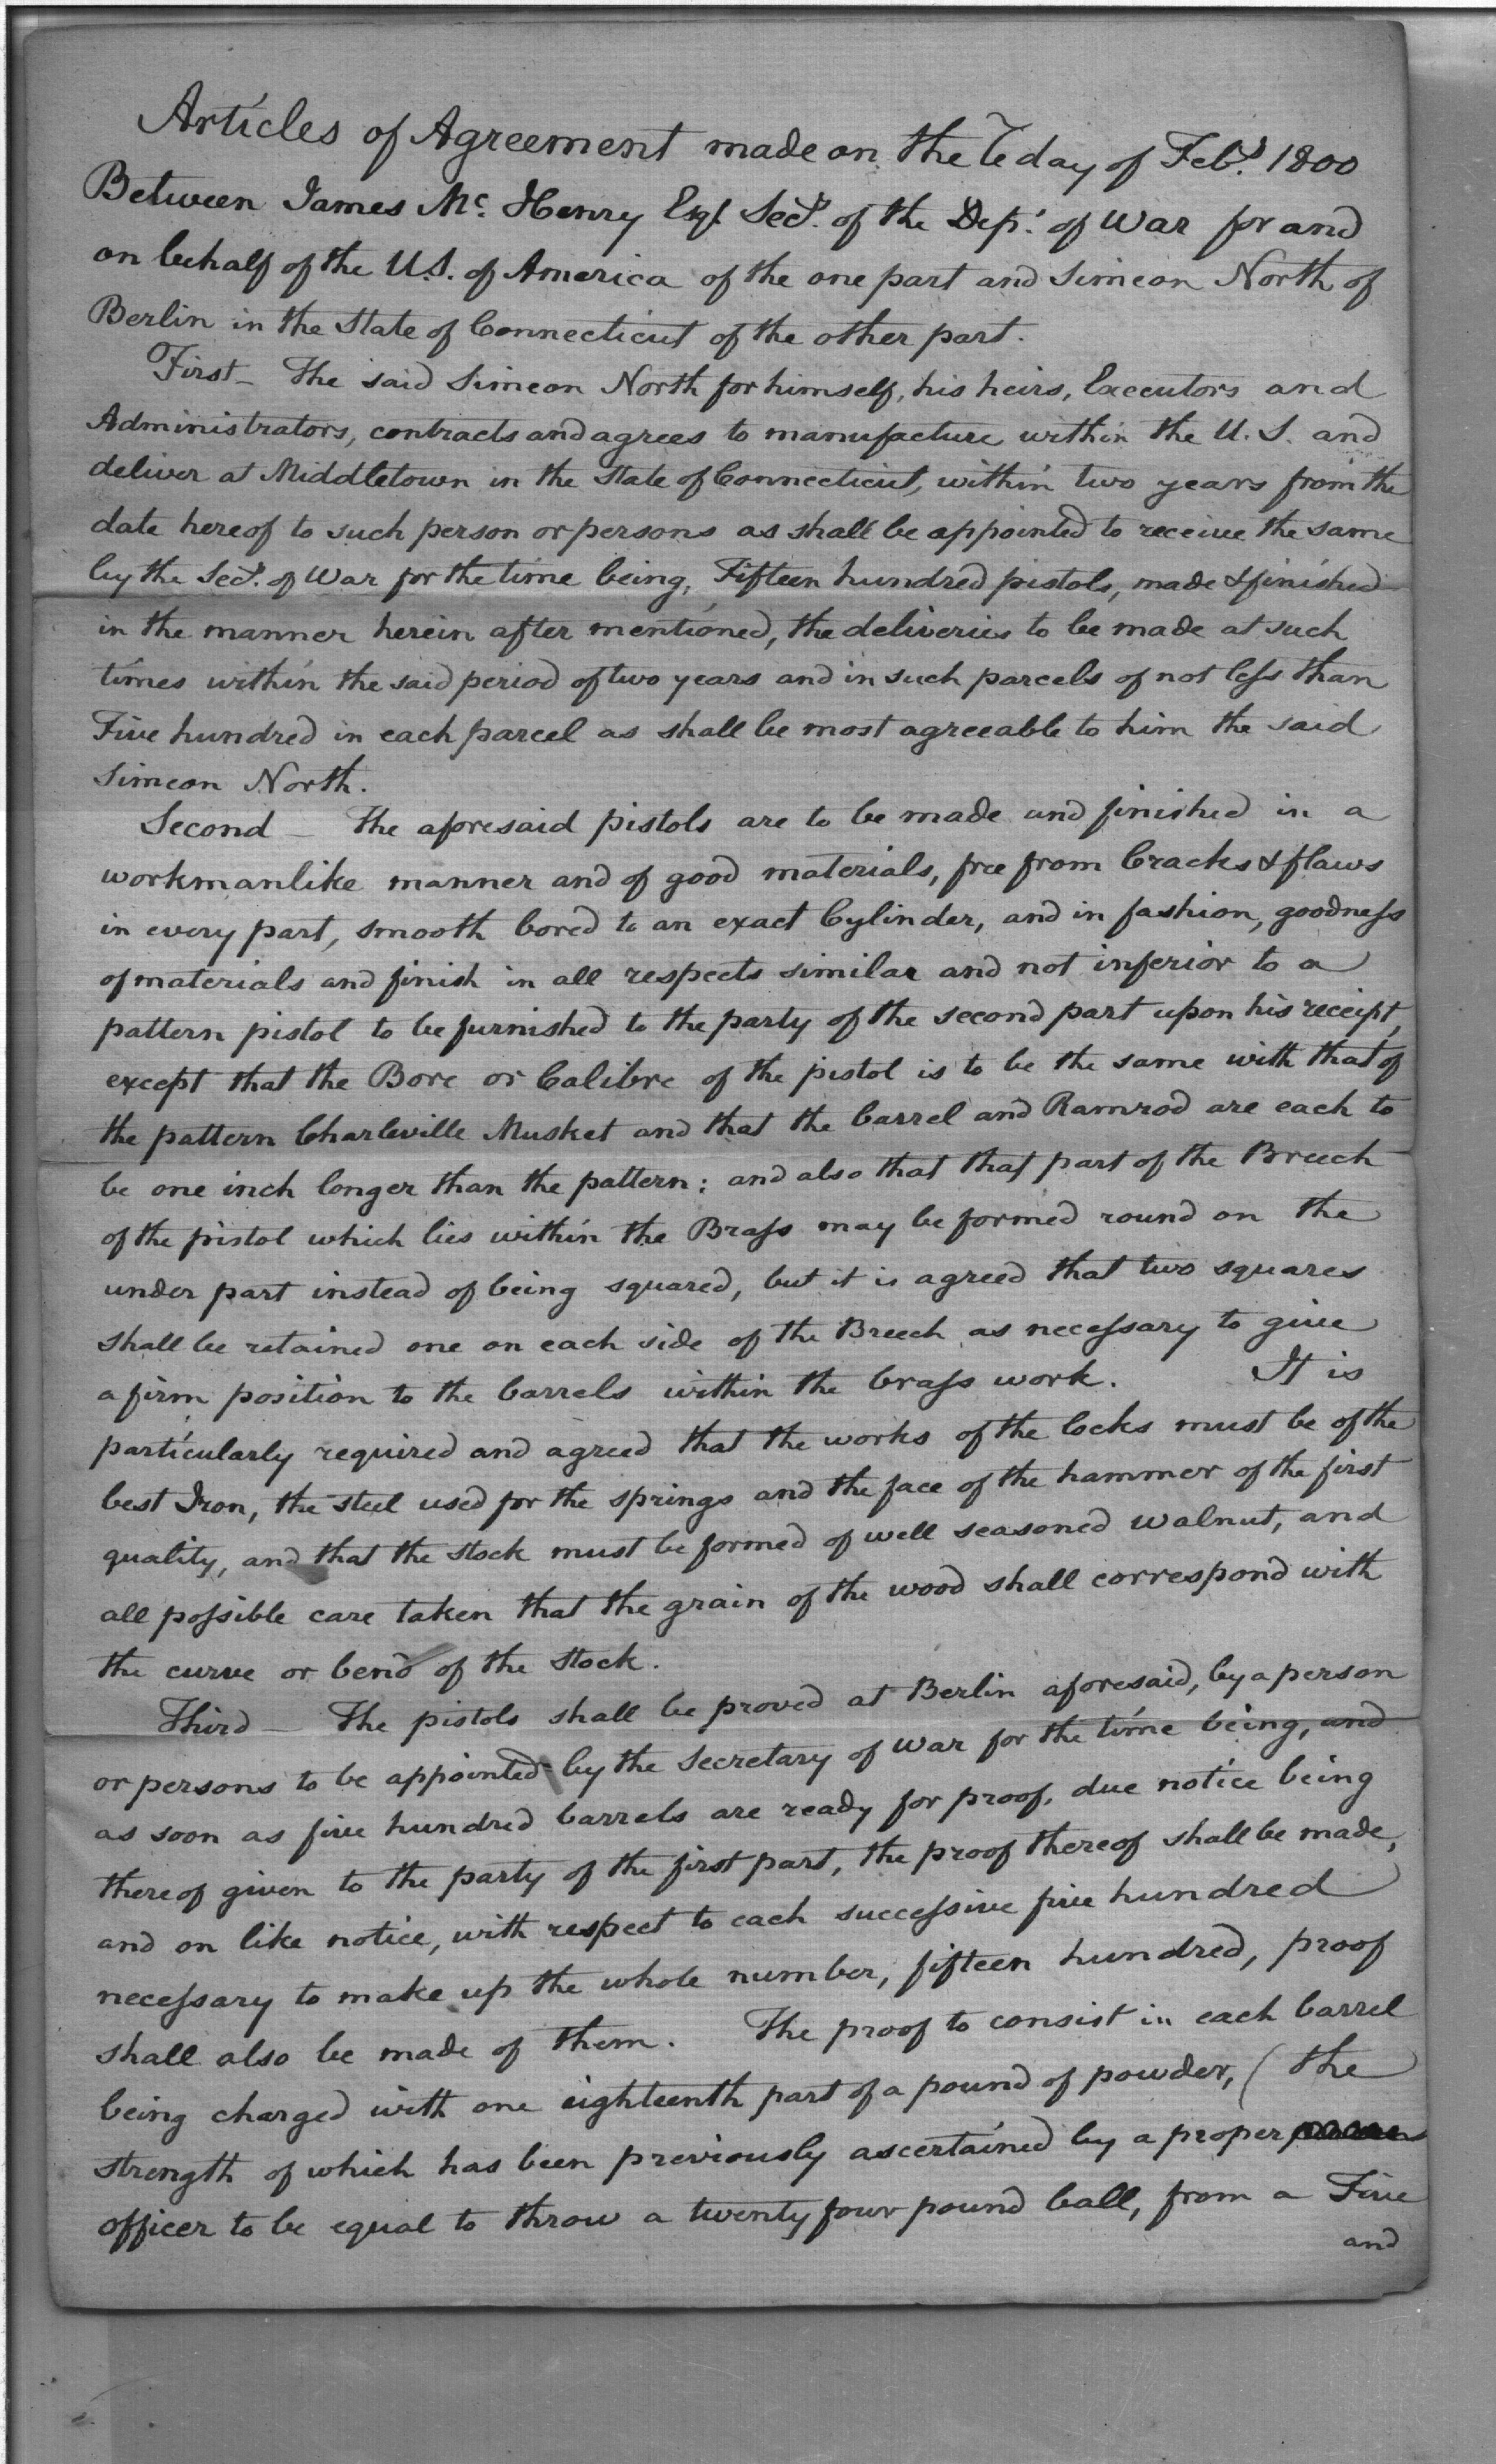 Articles of Agreement made on the 6 day of Feby. 1800
Between James Mc. Henry Esqr. Secy. of the Dept. of War for and
on behalf of the U.S. of America of the one part and Simeon North of
Berlin in the State of Connecticut of the other part.
First – The said Simeon North for himself, his heirs, Executors and
Administrators, contracts and agrees to manufacture within the U. S. and
deliver at Middletown in the State of Connecticut, within two years from the
date hereof to such person or persons as shall be appointed to receive the same
by the Secy. of War for the time being, Fifteen hundred pistols, made & finished
in the manner herein after mentioned, the deliveries to be made at such
times within the said period of two years and in such parcels of not less than
Five hundred in each parcel as shall be most agreeable to him the said
Simeon North.
Second – The aforesaid pistols are to be made and finished in a
workmanlike manner and of good materials, free from Cracks & flaws
in every part, smooth bored to an exact Cylinder, and in fashion, goodness
of materials and finish in all respects similar and not inferior to a
pattern pistol to be furnished to the party of the second part upon his receipt,
except that the Bore or Calibre of the pistol is to be the same with that of
the pattern Charleville Musket and that the barrel and Ramrod are each to
be one inch longer than the pattern: and also that that part of the Breech
of the pistol which lies within the Brass may be formed round on the
under part instead of being squared, but it is agreed that two squares
shall be retained one on each side of the Breech as necessary to give
a firm position to the barrels within the brass work. It is
particularly required and agreed that the works of the locks must be of the
best Iron, the steel used for the springs and the face of the hammer of the first
quality, and that the stock must be formed of well seasoned walnut, and
all possible care taken that the grain of the wood shall correspond with
the curve or bend of the stock.
Third – The pistols shall be proved at Berlin aforesaid, by a person
or persons to be appointed by the Secretary of War for the time being, and
as soon as five hundred barrels are ready for proof, due notice being
thereof given to the party of the first part, the proof thereof shall be made,
and on like notice, with respect to each successive five hundred
necessary to make up the whole number, fifteen hundred, proof
shall also be made of them. The proof to consist in each barrel
being charged with one eighteenth part of a pound of powder, (the
strength of which has been previously ascertained by a proper
officer to be equal to throw a twenty four pound ball, from a Five
and